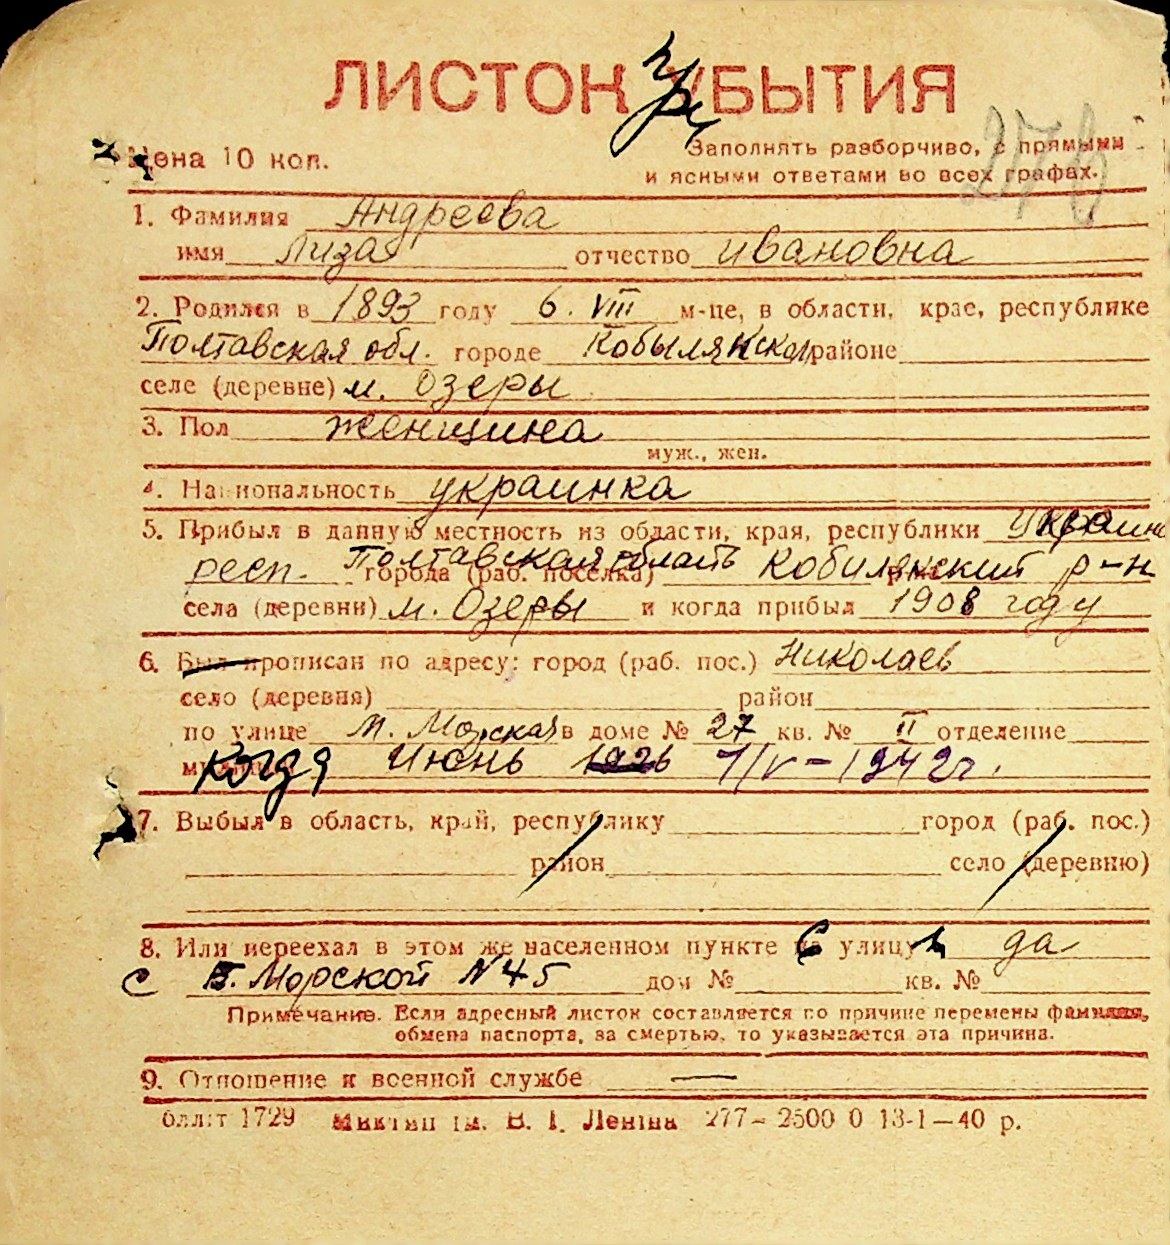 ЛИСТОК УБЫТИЯ
276
Цена 10 коп.
Заполнять разборчиво, с прямыми
и ясными ответами во всех графах.
1. Фамилия Андреева
имя Лиза отчество ивановна
2. Родился в 1893 году 6. VIII м-це, в области, крае, республике
Полтавская обл. городе Кобылянской районе
селе (деревне) м. Озеры
3. Пол женщина
муж., жен.
4. Национальность украинка
5. Прибыл в данную местность из области, края, республики Украине
респ. Полтавская область Кобилякский р-н
города (раб. поселка)
села (деревни) м. Озеры и когда прибыл 1908 году
6. Был прописан по адресу: город (раб. пос.) Николаев
село (деревня) район
по улице М. Морская в доме № 27 кв. № II отделение
когда Июнь 1926 7/V-1942г.
7. Выбыл в область, край, республику город (раб. пос.)
район село (деревню)
8. Или переехал в этом же населенном пункте с улицу да
с Б. Морской N 45 дом № кв. №
Примечание. Если адресный листок составляется по причине перемены фамилии,
обмена паспорта, за смертью, то указывается эта причина.
9. Отношение к военной службе —
обліт 1729 ім. В. І. Леніна 277-2500 0 13-1-40 р.